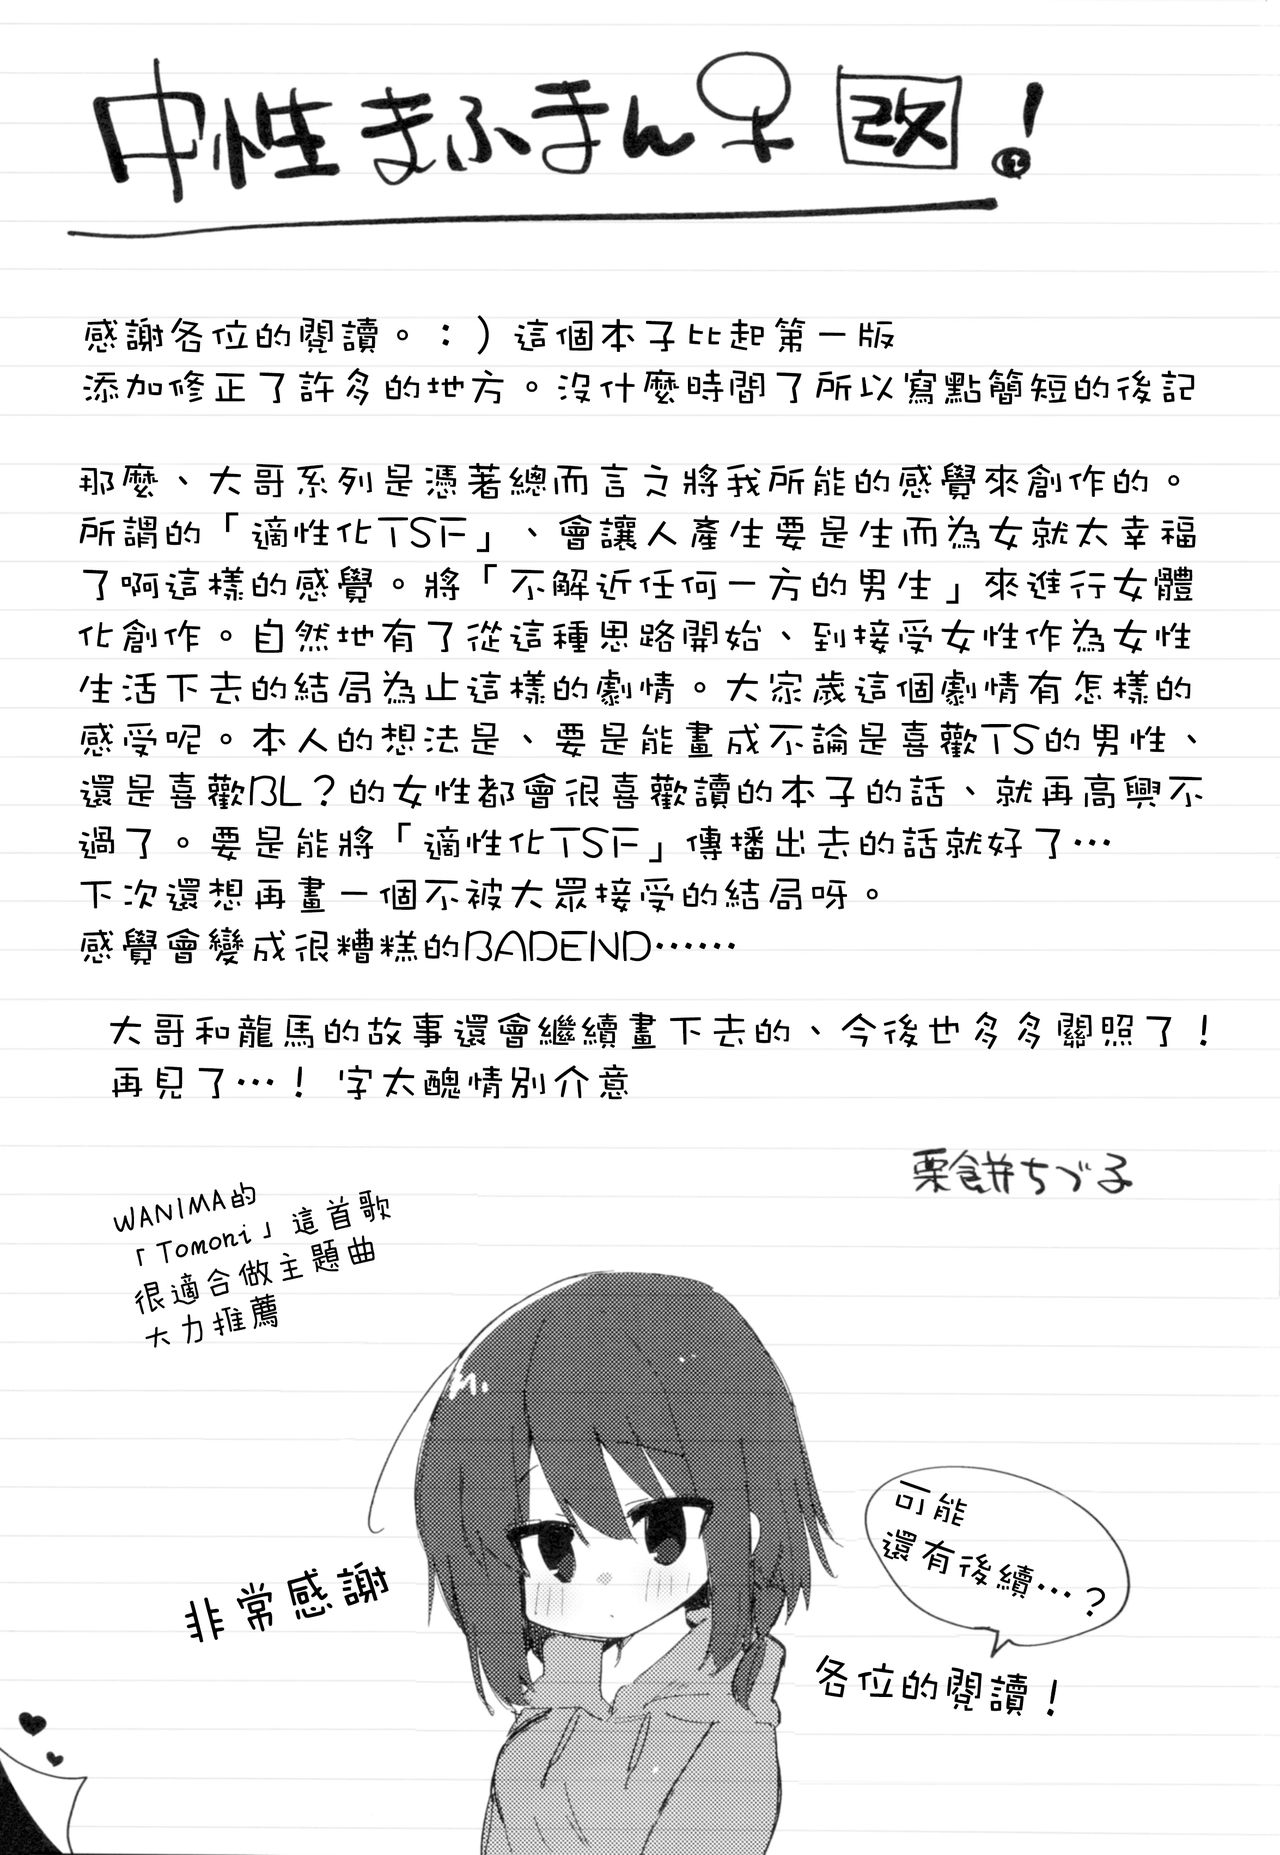 中性まふまん♀ 改!
感謝各位的閱讀。:)這個本子比起第一版
添加修正了許多的地方。沒什麼時間了所以寫點簡短的後記
那麼、大哥系列是憑著總而言之將我所能的感覺來創作的。
所謂的「適性化TSF」、會讓人產生要是生而為女就太幸福
了啊這樣的感覺。將「不解近任何一方的男生」來進行女體
化創作。自然地有了從這種思路開始、到接受女性作為女性
生活下去的結局為止這樣的劇情。大家歲這個劇情有怎樣的
感受呢。本人的想法是、要是能畫成不論是喜歡TS的男性、
還是喜歡BL?的女性都會很喜歡讀的本子的話、就再高興不
過了。要是能將「適性化TSF」傳播出去的話就好了…
下次還想再畫一個不被大眾接受的結局呀。
感覺會變成很糟糕的BADEND……
大哥和龍馬的故事還會繼續畫下去的、今後也多多關照了!
再見了…! 字太醜情別介意
栗餅ちづ子
WANIMA的
「Tomoni」這首歌
很適合做主題曲
大力推薦
可能
還有後續…?
非常感謝
各位的閱讀!